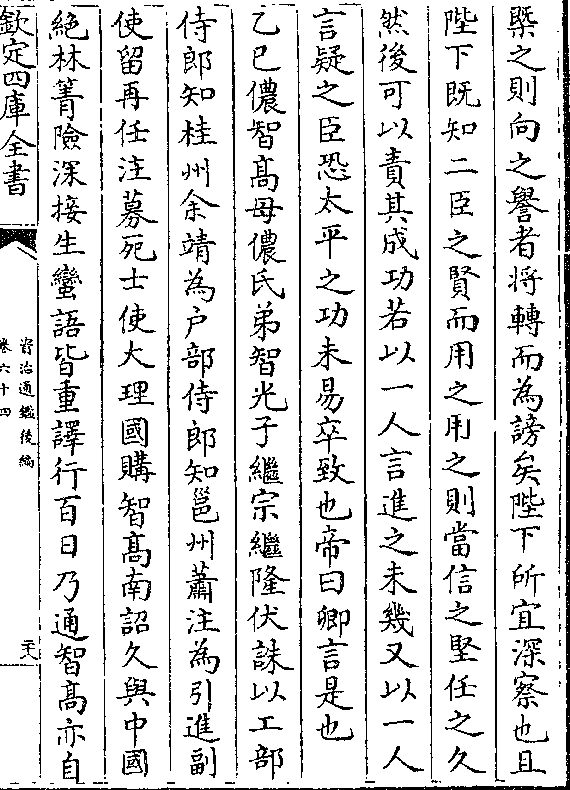 槩之則向之譽者將轉而為謗矣陛下所宜深察也且
陛下既知二臣之賢而用之用之則當信之堅任之久
然後可以責其成功若以一人言進之未幾又以一人
言疑之臣恐太平之功未易卒致也帝曰卿言是也
乙巳儂智髙母儂氏弟智光子繼宗繼隆伏誅以工部
侍郎知桂州余靖為户部侍郎知邕州蕭注為引進副
使留再任注募死士使大理國購智髙南詔久與中國
絶林箐險深接生蠻語皆重譯行百日乃通智髙亦自
欽定四庫全書
資治通鑑後編
卷六十四
二十八